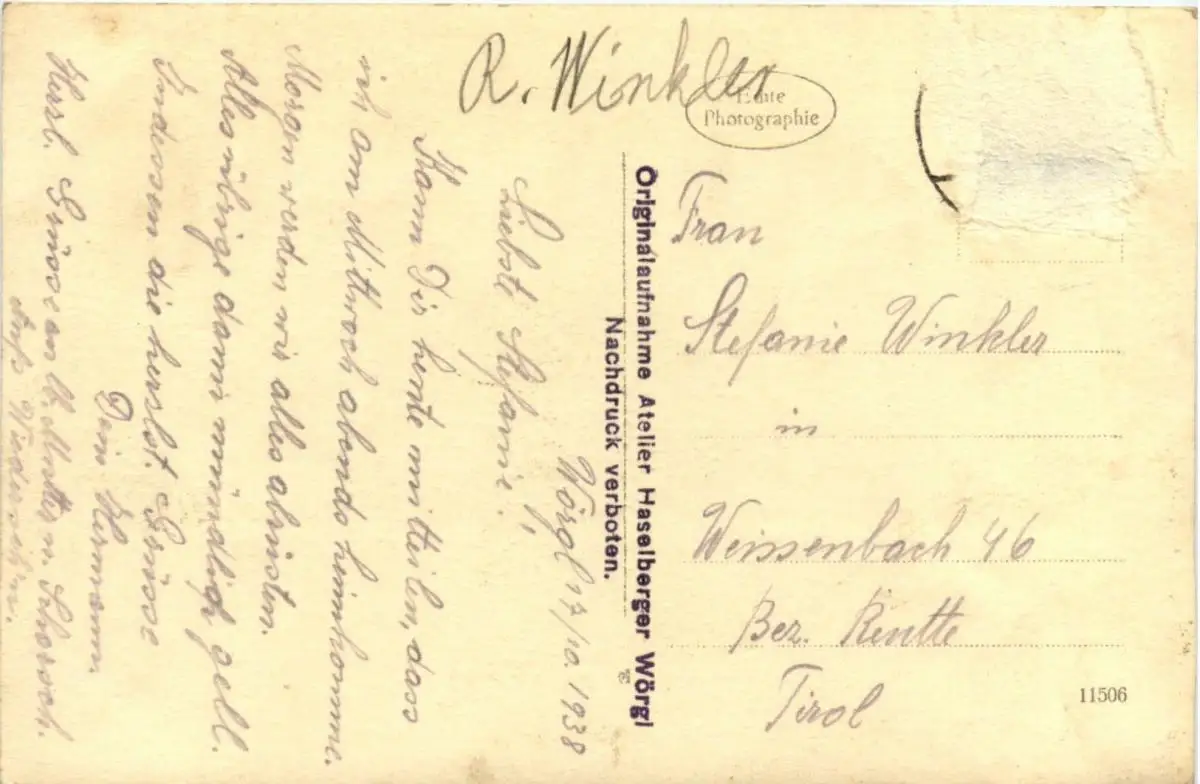 R. Winkler
Echte
Photographie
Originalaufnahme Atelier Haselberger Wörgl
Nachdruck verboten.
Wörgl 17/10. 1938
Liebste Stefanie!
Kann Dir heute mitteilen, dass
ich am Mittwoch abends heimkomme.
Morgen werden wir alles
Alles übrige dann mündlich gell.
Indessen die herzlst. Grüsse
Dein Hermann.
Herzl. Grüsse an lb. Mutter u. Schorsch.
Auf Wiedersehn.
Frau
Stefanie Winkler
in
Weissenbach 46
Bez. Reutte
Tirol
11506